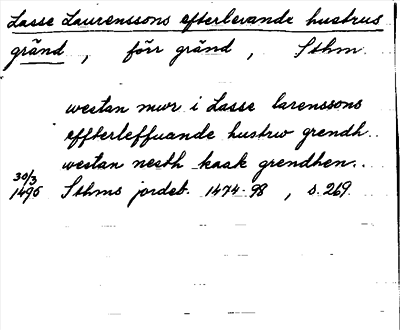 Lasse Laurenssons efterlevande hustrus
gränd, förr gränd, Sthm
westan mwr i Lasse larenssons
effterleffuande hustrw grendh..
westan nesth kaak grendhen..
30/3
1496 Sthms jordeb. 1474-98, s. 269